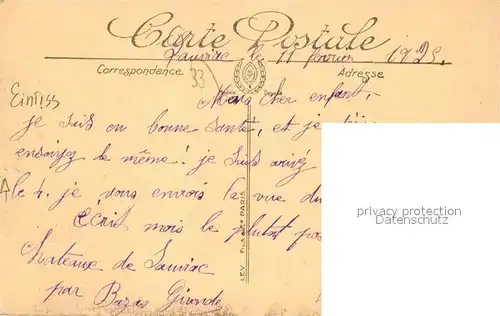 Carte Postale
Sauviac le 11 février 1925.
Correspondance
Adresse
33
Mons cher enfant,
Eintiss
je suis en bonne santé, et je
ensoiyez de même! je suis arivé
le 4. je vous envois la vue du
Ecrit mois le plutot
Chateaux de Sauviac
par Bazas Gironde
LEV. FILS ET PARIS
privacy protection
Datenschutz